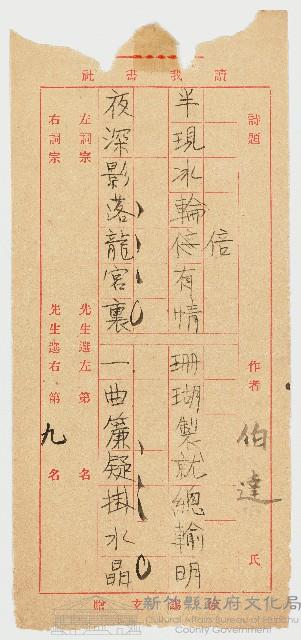 讀我書社
詩題
作者 伯達 氏
半現冰輪倍有情 珊瑚製就總輸明
倍
夜深影落龍宮裏 一曲簾疑掛水晶
左詞宗 先生選左第 名
右詞宗 先生選右第 九 名
贈
新竹縣政府文化局
Cultural Affairs Bureau of Hsinchu County Government